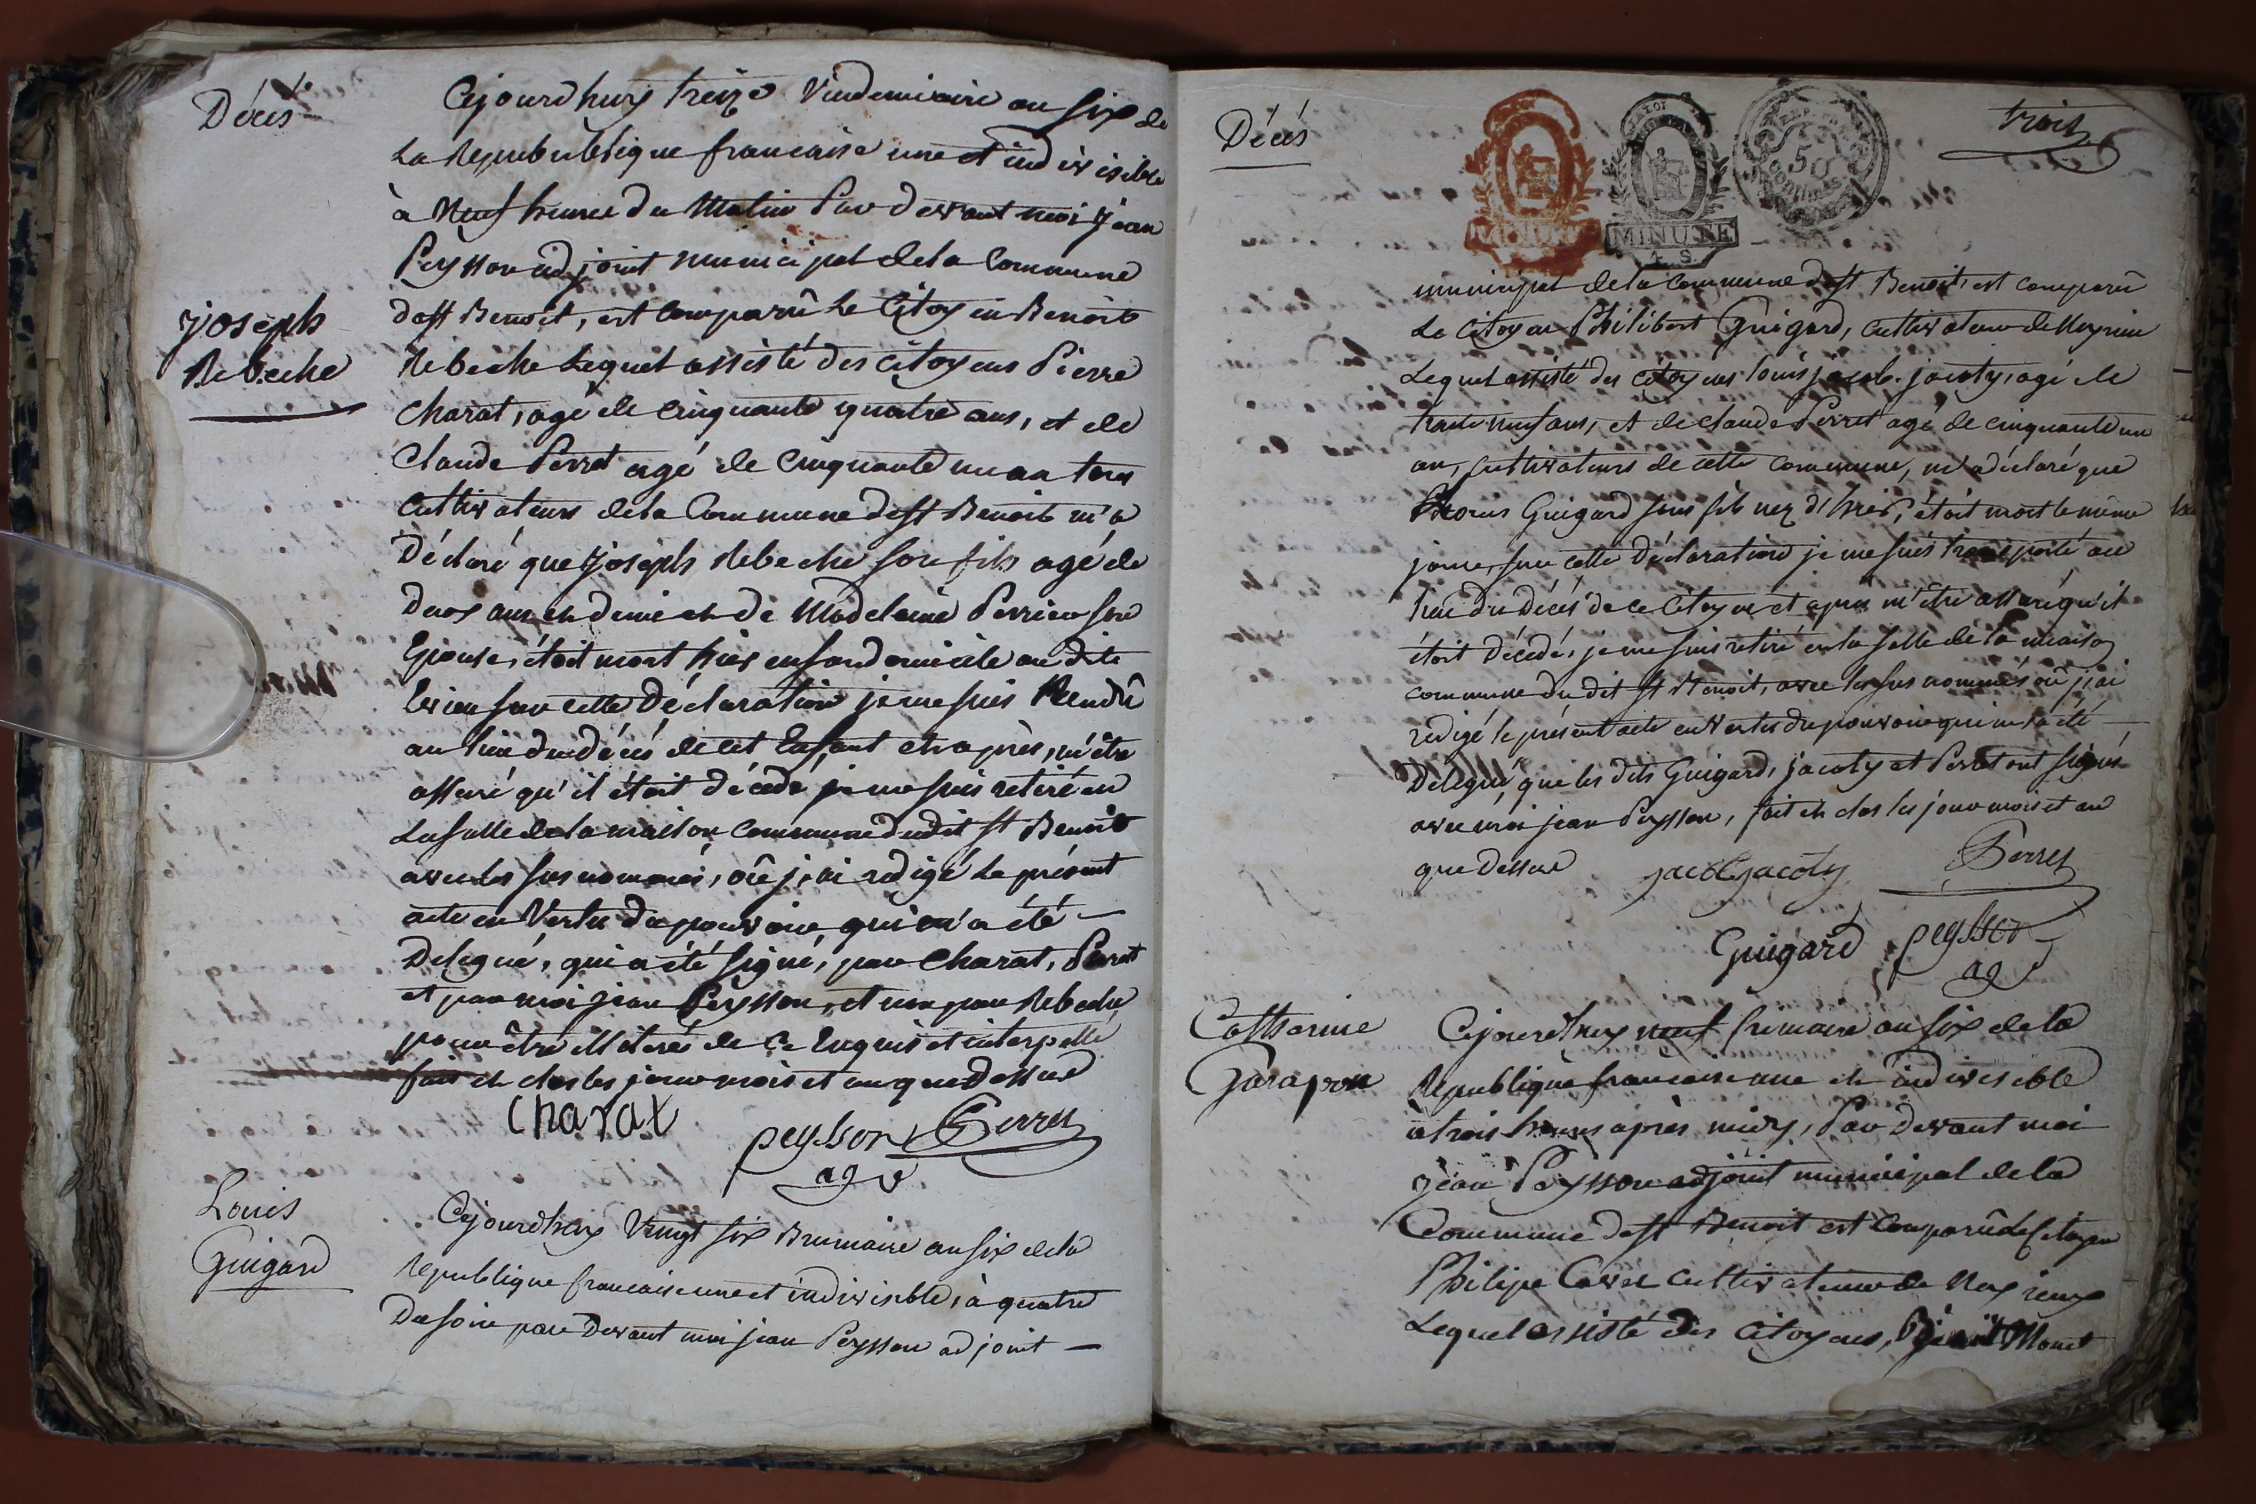 Décès
Cejourdhuy treize Vindemiaire an six de
La Republique francaise une et indivisible
à Neuf heures du Matin Par devant moi jean
Peysson adjoint municipal de la Commune
de st Benoit, est comparû Le Citoyen Benoit
joseph
Rebeche
Rebeche Lequel assisté des citoyens Pierre
Charat, agé de cinquante quatre ans, et de
Claude Perret agé de cinquante un an tous
Cultivateurs de la Commune de st Benoit m'a
Déclaré que joseph Rebeche son fils agé de
deux ans et demi et de Madelaine Perrin son
Epouse, étoit mort hier en son domicile au dit
Evieu sur cette Déclaration je me suis Rendû
au lieu du décès de cet Enfant et après, m'être
assuré qu'il étoit décédé je me suis retiré en
La salle de la maison commune dudit st Benoit
avec les sus nommés, où j'ai redigé le présent
acte en Vertu du pouvoir qui m'a été
Delegué, qui a été signé, par Charat, Perret
et par moi jean Peysson, et non par Rebeche
pour être illiteré de ce Enquis et interpellé
fait et clos les jour mois et an que Dessus
Charat
peysson
Perret
agt
Louis
Guigard
Cejourdhuy Vingt six Brumaire an six de la
Republique francaise une et indivisible, à quatre
Du soir par Devant moi jean Peysson adjoint
Décés
trois
50
CENTIMES
MINUTE
municipal de la commune de st Benoit, est comparû
Le Citoyen Philibert Guigard, cultivateur de
Lequel assisté des citoyens louis jacob jacoty, agé de
trente neuf ans, et de claude Perret agé de cinquante un
an, cultivateurs de cette commune, m'a déclaré que
Guigard son fils nez d'hier, étoit mort le même
jour, sur cette Déclaration je me suis transporté au
lieu du décés de ce Citoyen et après m'être assuré qu'il
étoit décédé, je me suis retiré en la salle de la maison
commune du dit st Benoit, avec les sus nommés où j'ai
redigé le présent acte en vertu du pouvoir qui m'a été
Delegué, que les dits Guigard, jacoty et Perret ont signés
avec moi jean Peysson, fait et clos les jour mois et an
que Dessus
jacob jacoty
Perret
Guigard
peysson
agt
Catharine
Garapon
Cejourdhuy neuf frimaire an six de la
Republique francaise une et indivisible
à trois heures après midy, Par Devant moi
jean Peysson adjoint municipal de la
Commune de st Benoit est comparû le Citoyen
Philipe cultivateur de
Lequel assisté des citoyens,